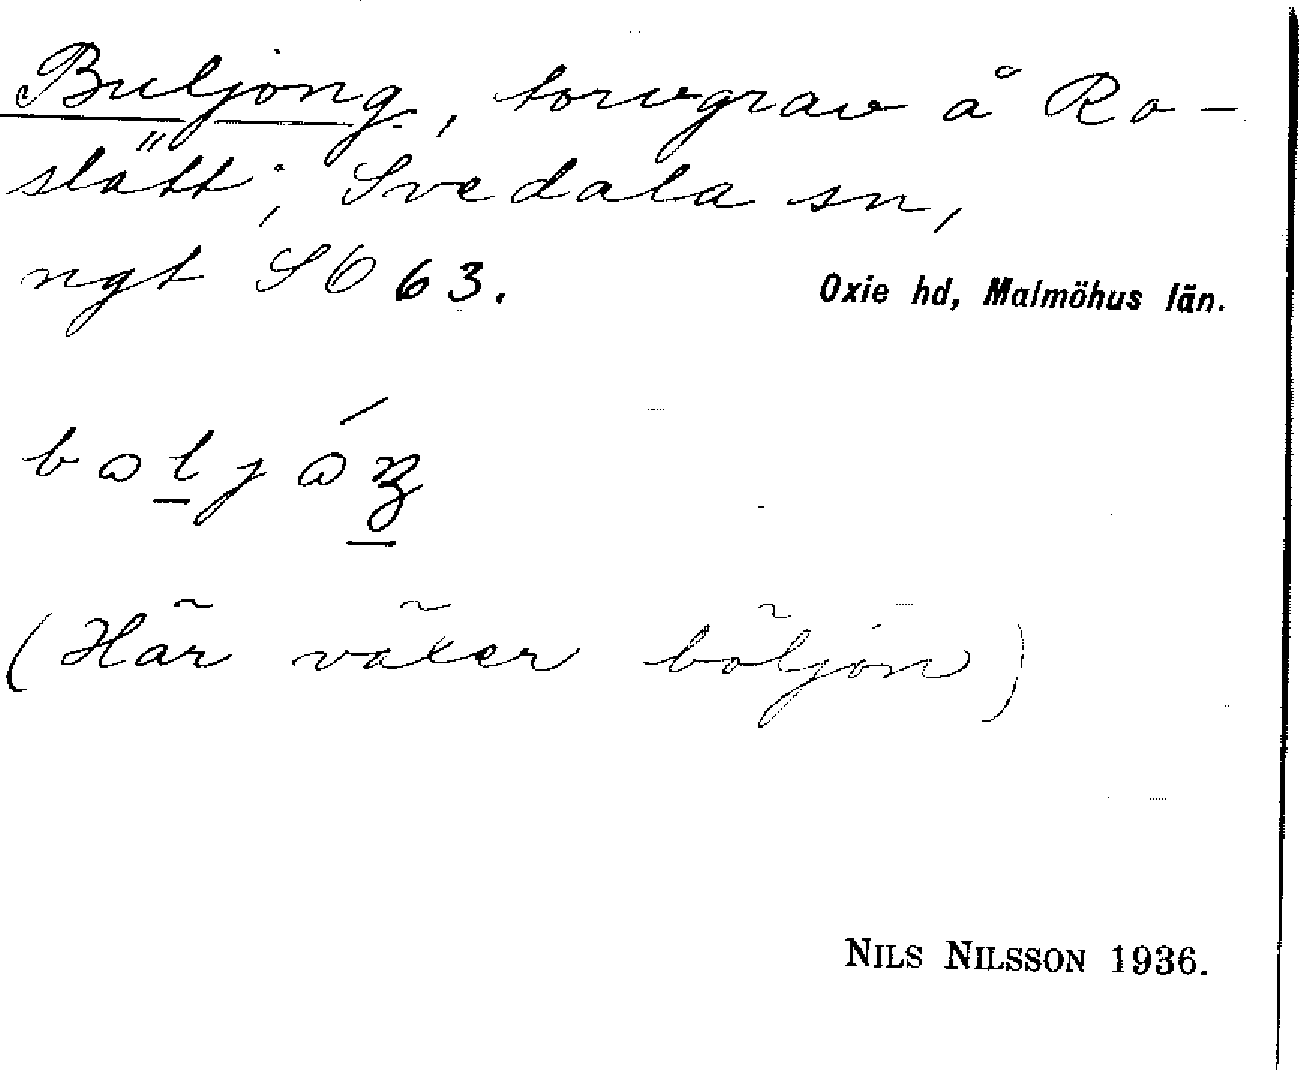 Buljong, torvgrav å Ro-
slätt; Svedala sn,
ngt SO 63.
Oxie hd, Malmöhus län.
(Här växer böljon)
NILS NILSSON 1936.